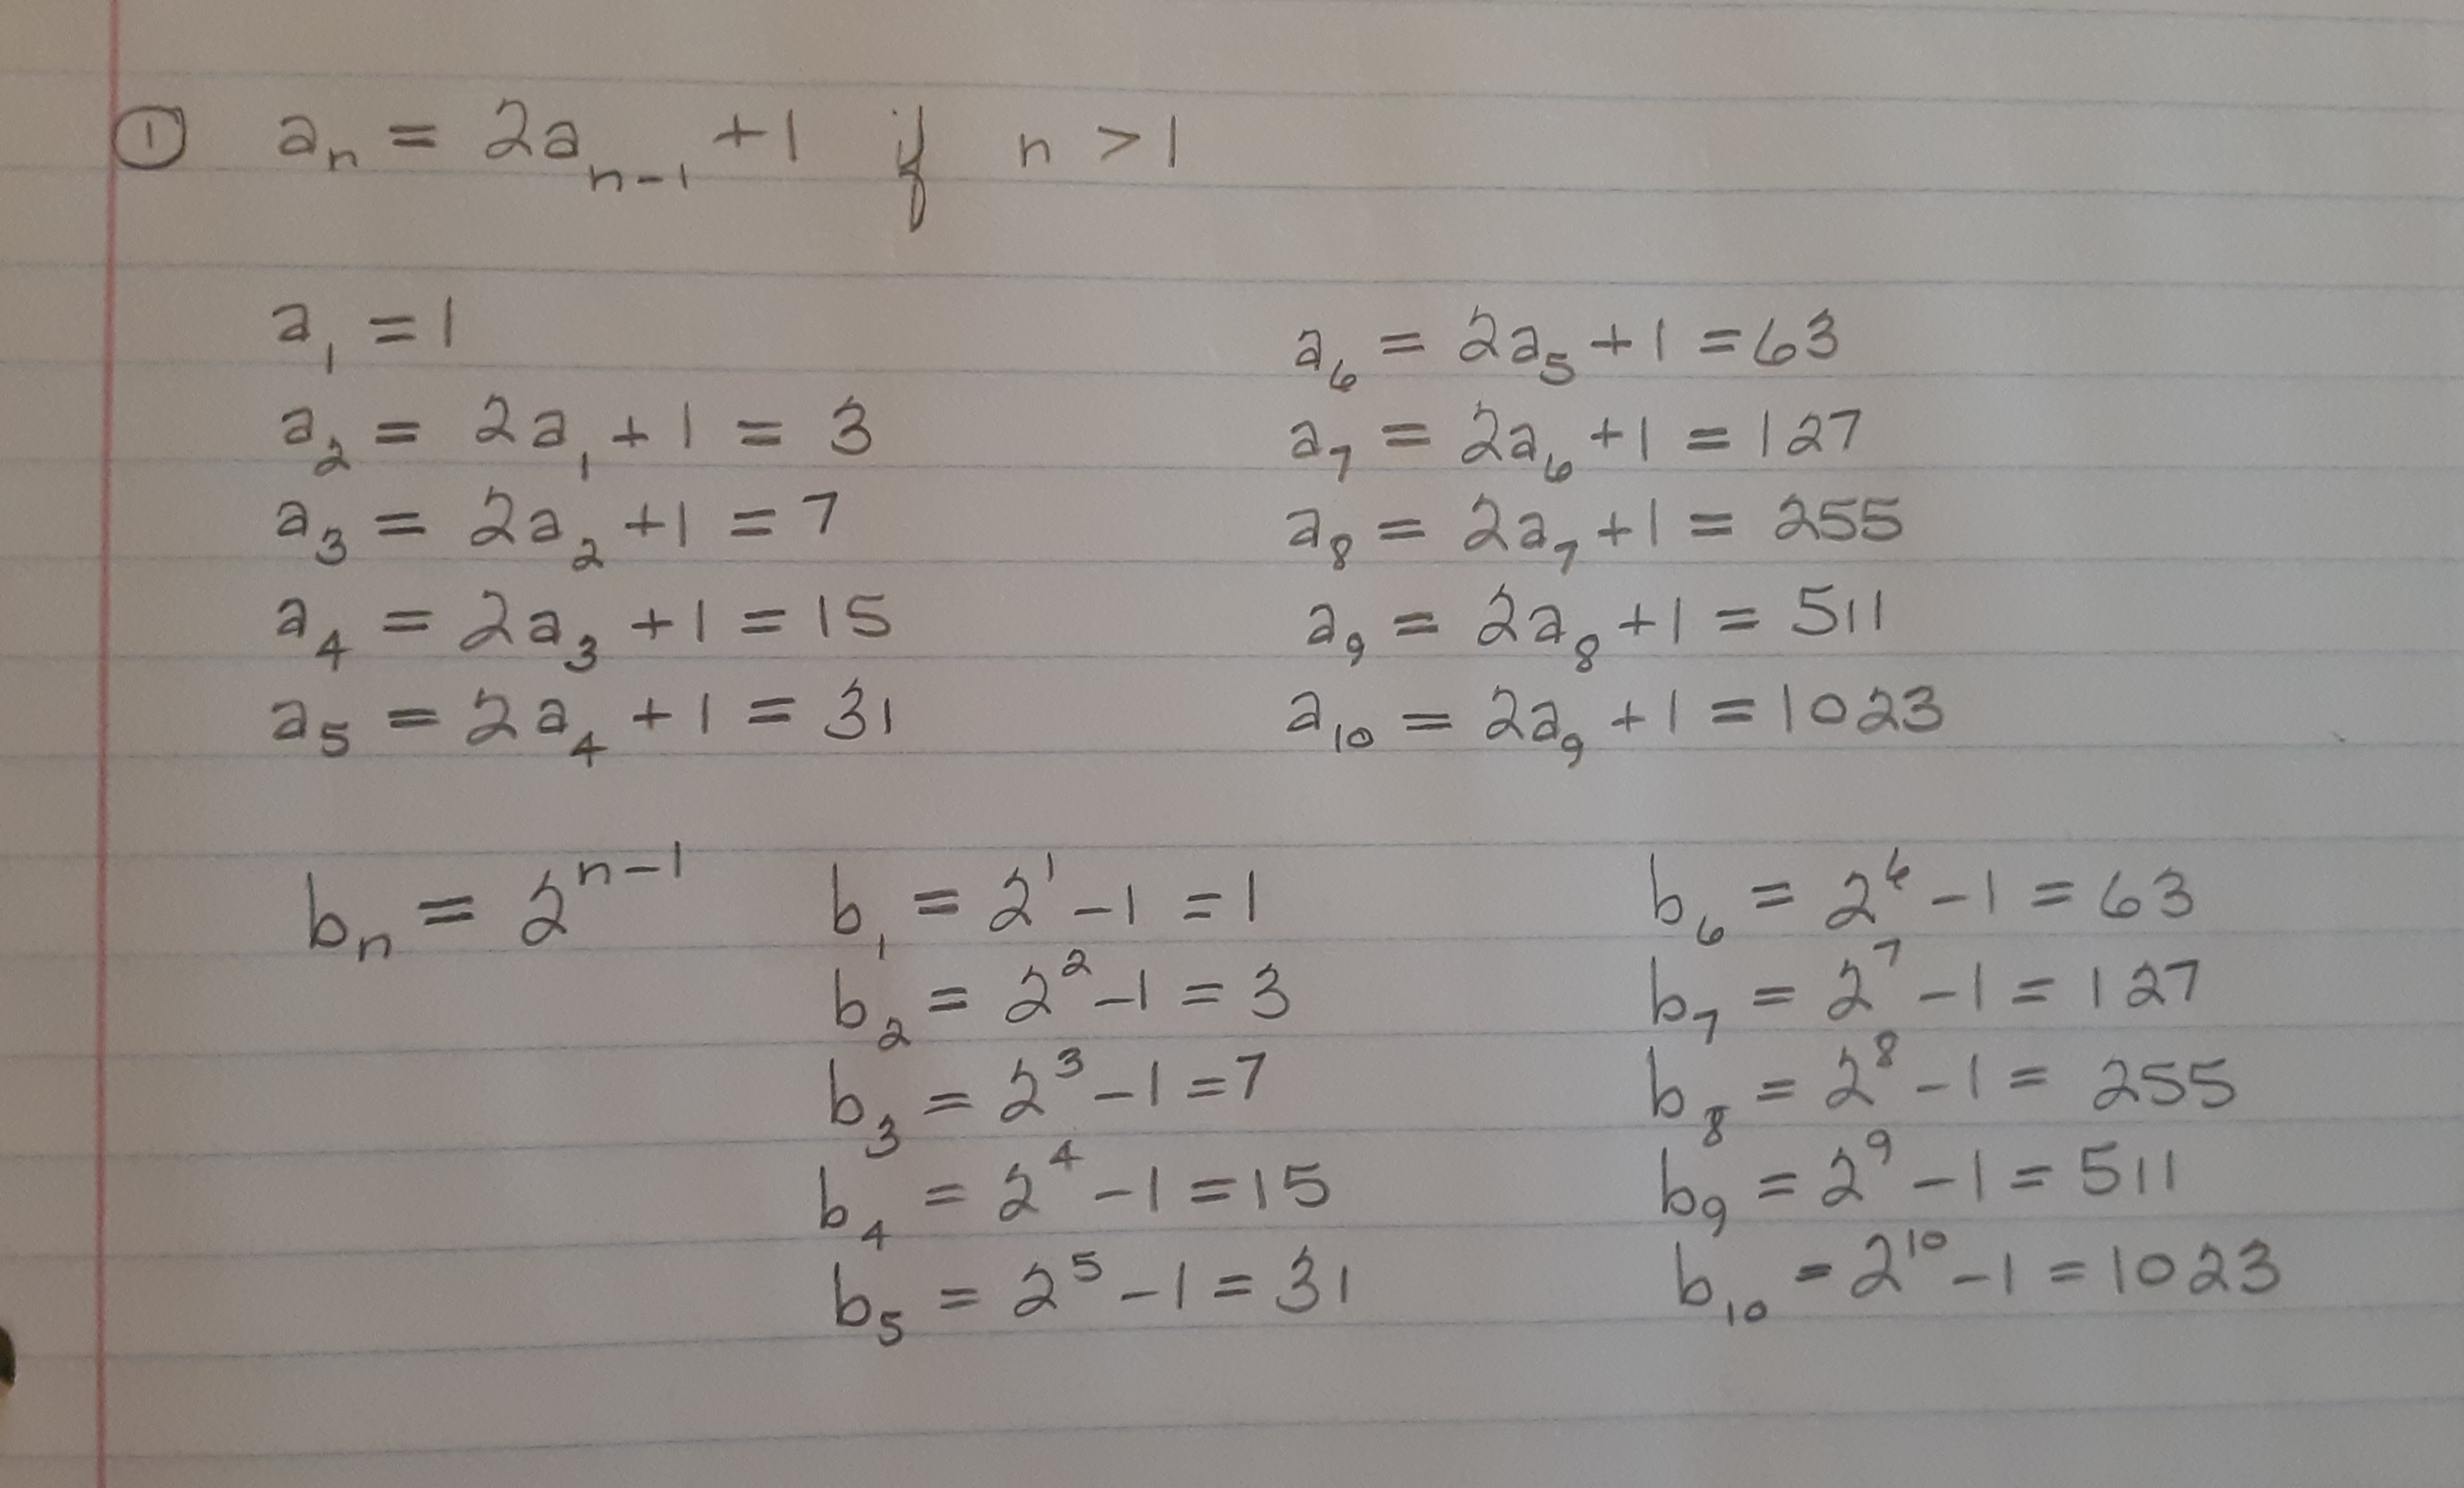 ① aₙ = 2aₙ₋₁ + 1 if n > 1
a₁ = 1
a₂ = 2a₁ + 1 = 3
a₃ = 2a₂ + 1 = 7
a₄ = 2a₃ + 1 = 15
a₅ = 2a₄ + 1 = 31
a₆ = 2a₅ + 1 = 63
a₇ = 2a₆ + 1 = 127
a₈ = 2a₇ + 1 = 255
a₉ = 2a₈ + 1 = 511
a₁₀ = 2a₉ + 1 = 1023
bₙ = 2ⁿ⁻¹
b₁ = 2¹ - 1 = 1
b₂ = 2² - 1 = 3
b₃ = 2³ - 1 = 7
b₄ = 2⁴ - 1 = 15
b₅ = 2⁵ - 1 = 31
b₆ = 2⁶ - 1 = 63
b₇ = 2⁷ - 1 = 127
b₈ = 2⁸ - 1 = 255
b₉ = 2⁹ - 1 = 511
b₁₀ = 2¹⁰ - 1 = 1023